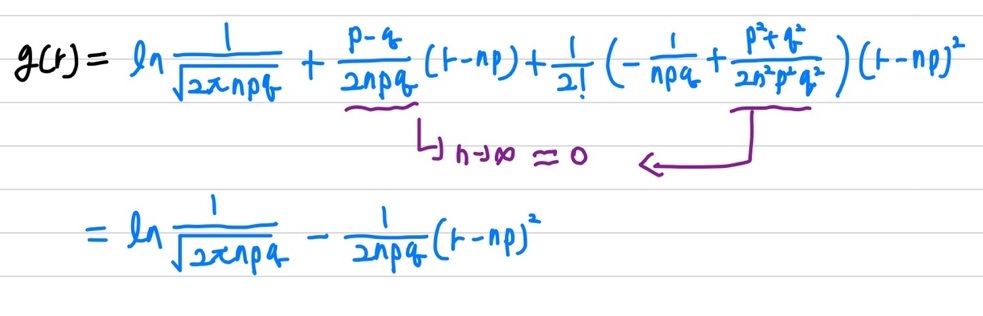 g(r) = ln 1/√(2πnpq) + (p-q)/(2npq) (r-np) + 1/2! (-1/(npq) + (p²+q²)/(2n²p²q²)) (r-np)²
↳ n→∞ ≈ 0 ←
= ln 1/√(2πnpq) - 1/(2npq) (r-np)²